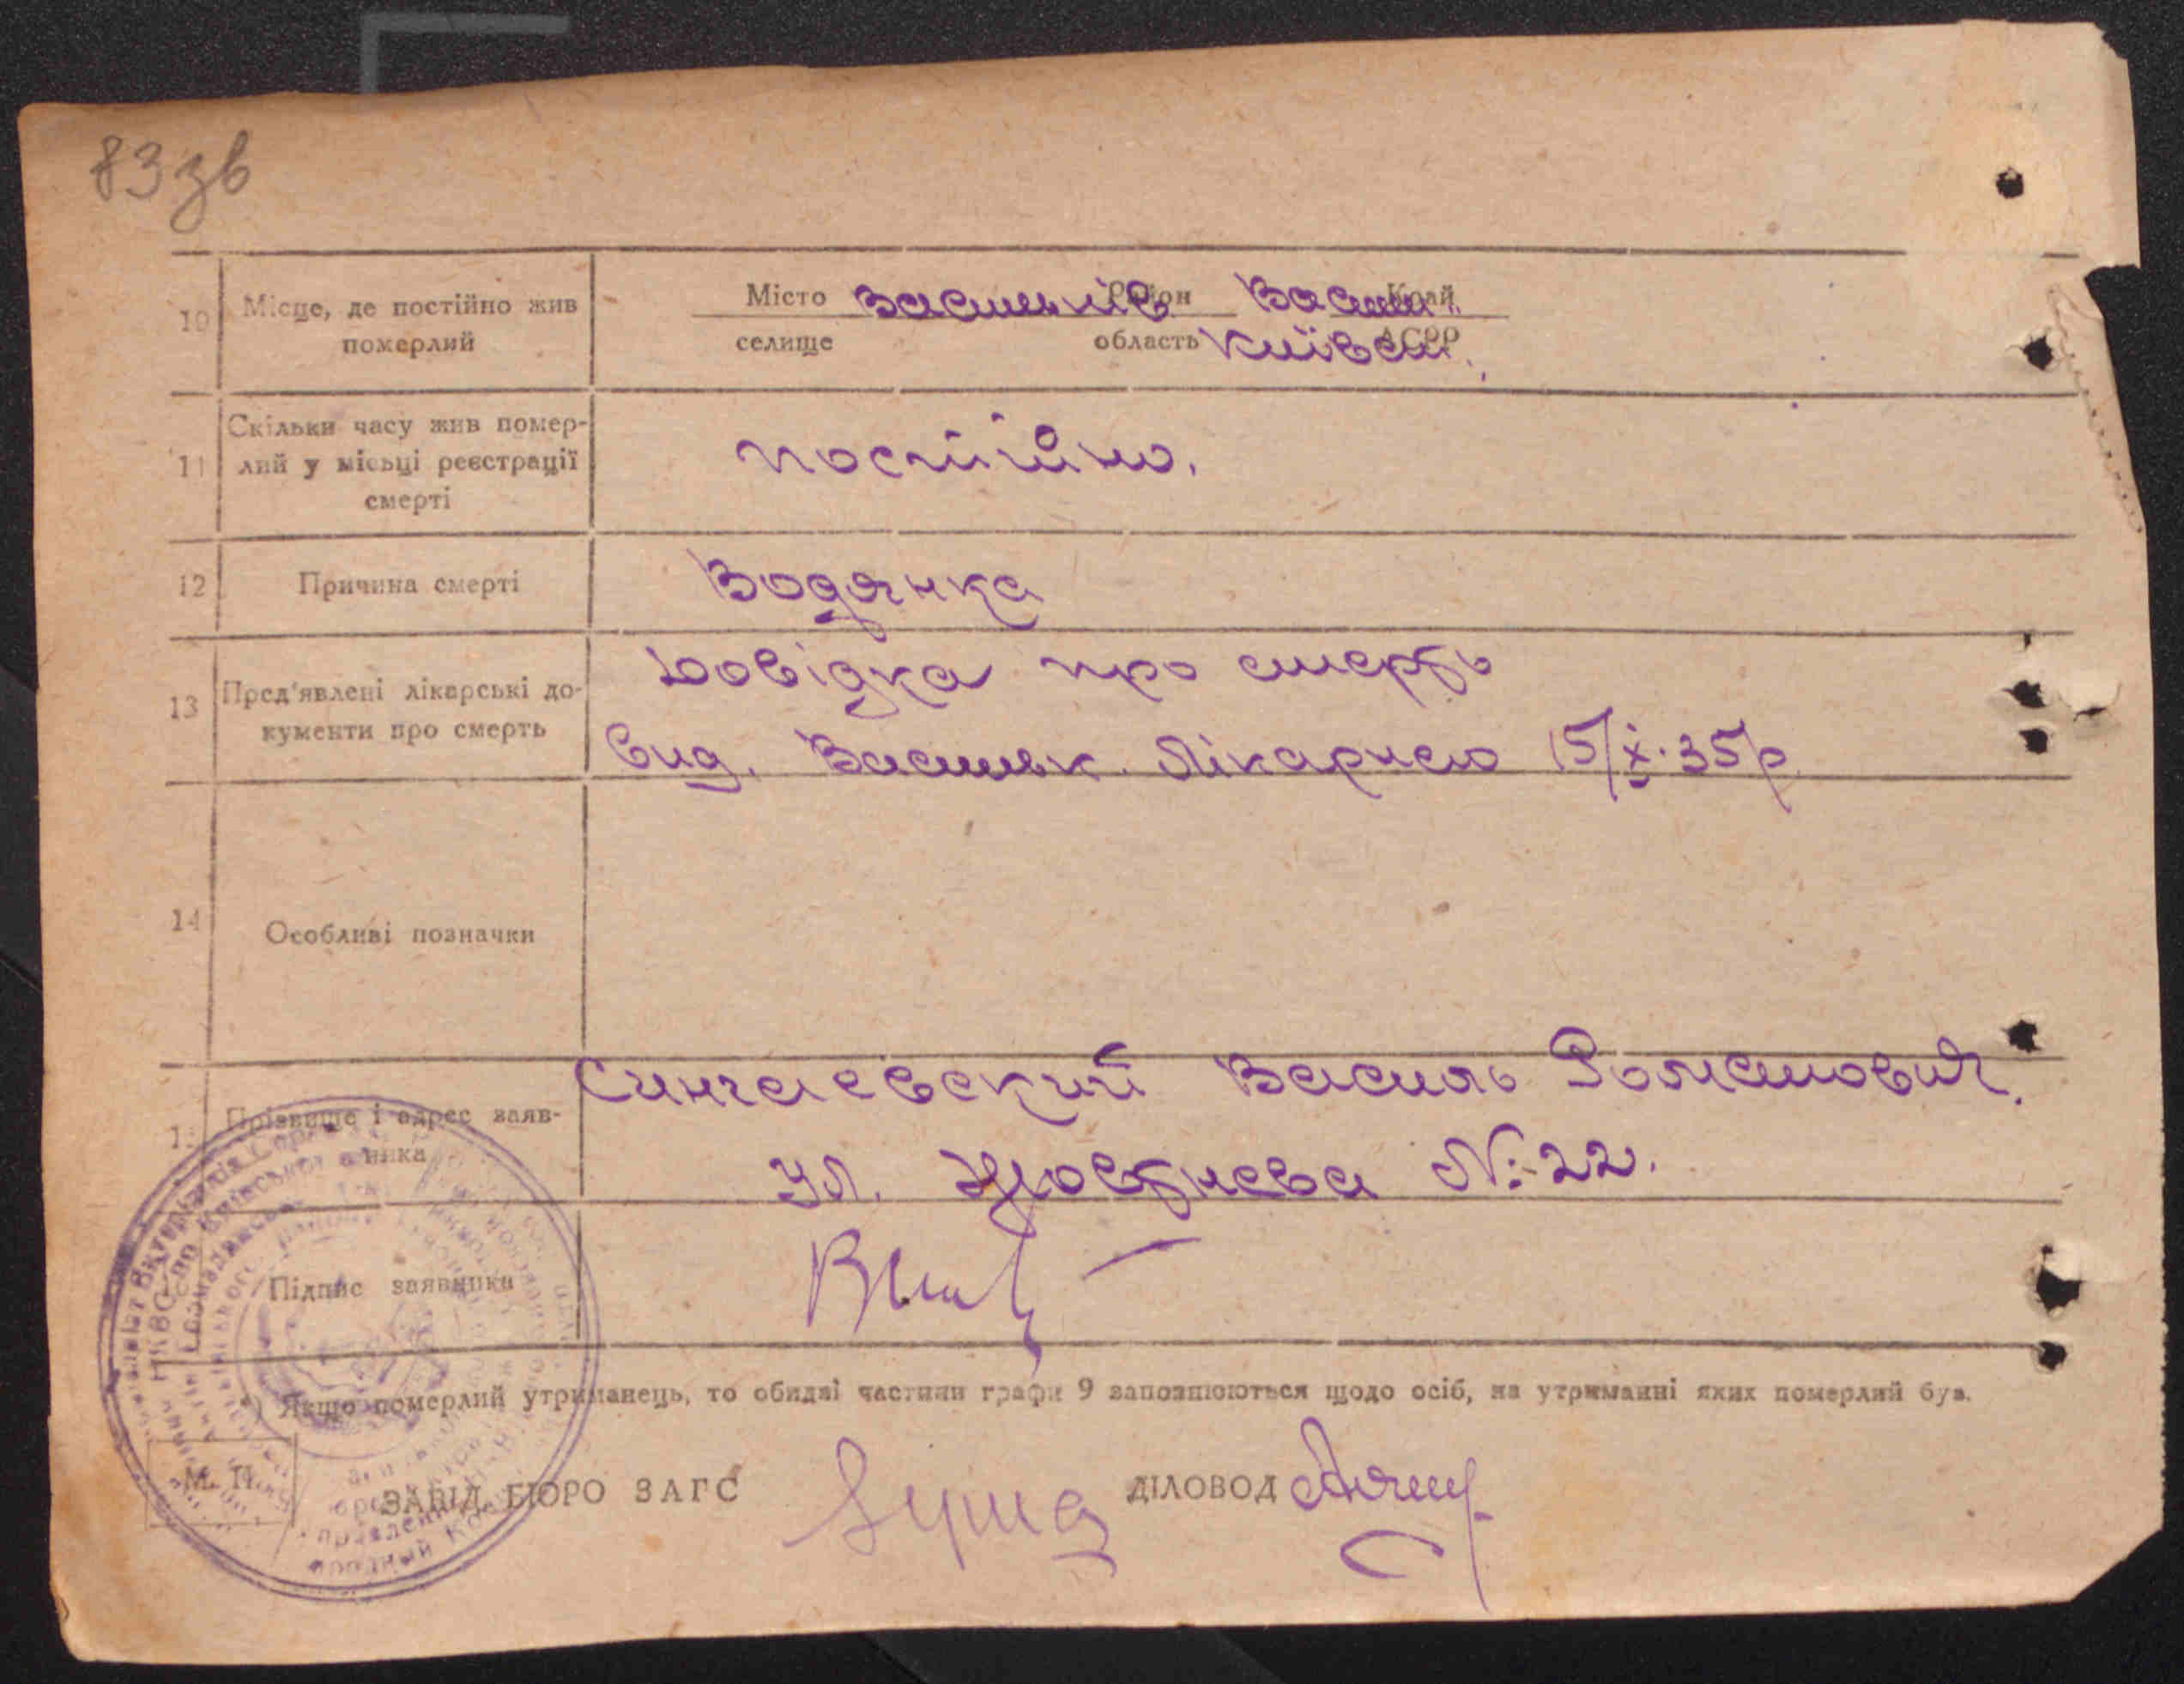 83 зв
10 Місце, де постійно жив померлий
Місто Васильків Район Васильк. Край
селище область Київськ. АСРР
11 Скільки часу жив помер-
лий у місьці реєстрації
смерті
постійно.
12 Причина смерті Водянка
13 Пред'явлені лікарські до-
кументи про смерть
Довідка про смерть
вид. Васильк. Лікарнею 15/X.35р
14 Особливі позначки
Прізвище і адрес заяв-
ника
Сингаевский Василь Романович.
ул. Жовтнева №: 22.
Підпис заявника
*) Якщо померлий утриманець, то обидві частини графи 9 заповнюються щодо осіб, на утриманні яких померлий був.
М. П.
ЗАВІД. БЮРО ЗАГС ДІЛОВОД